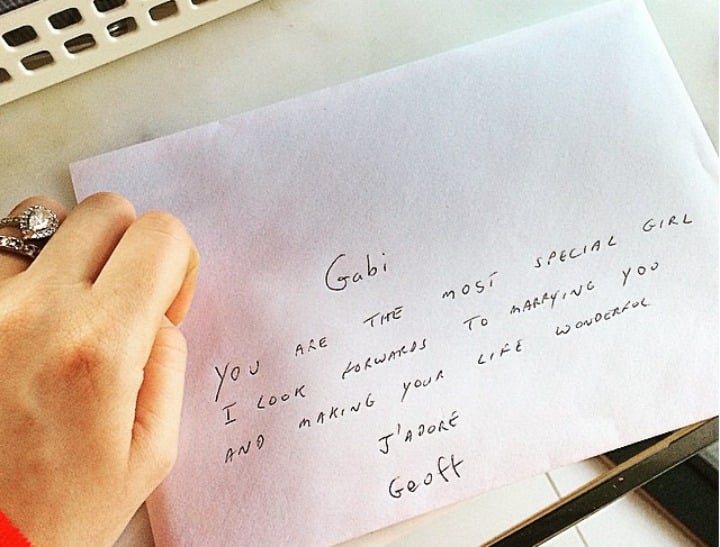 Gabi
YOU ARE THE MOST SPECIAL GIRL
I LOOK FORWARDS TO MARRYING YOU
AND MAKING YOUR LIFE WONDERFUL
J'ADORE
Geoff